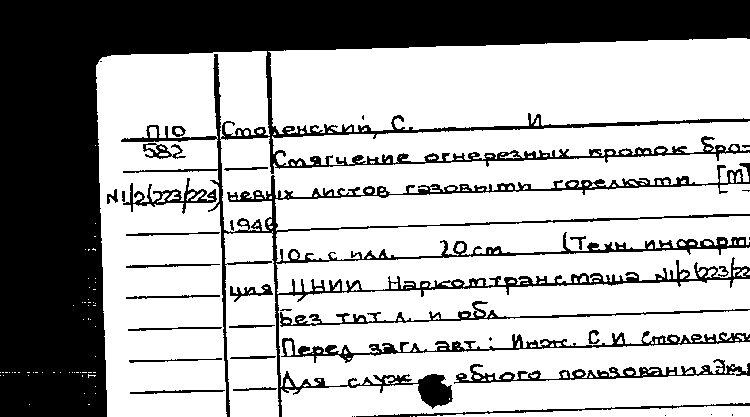 П10 Смоленский, С. И
582 Смягчение огнерезных кромок бро-
N1/2(223/224) невых листов газовыми горелками. [М]
1946
10 с. с илл. 20 см. (Техн. информа
ция ЦНИИ Наркомтрансмаша N1/2(223/22
Без тит. л. и обл.
Перед загл. авт.: Инж. С.И Смоленски
Для служебного пользования.